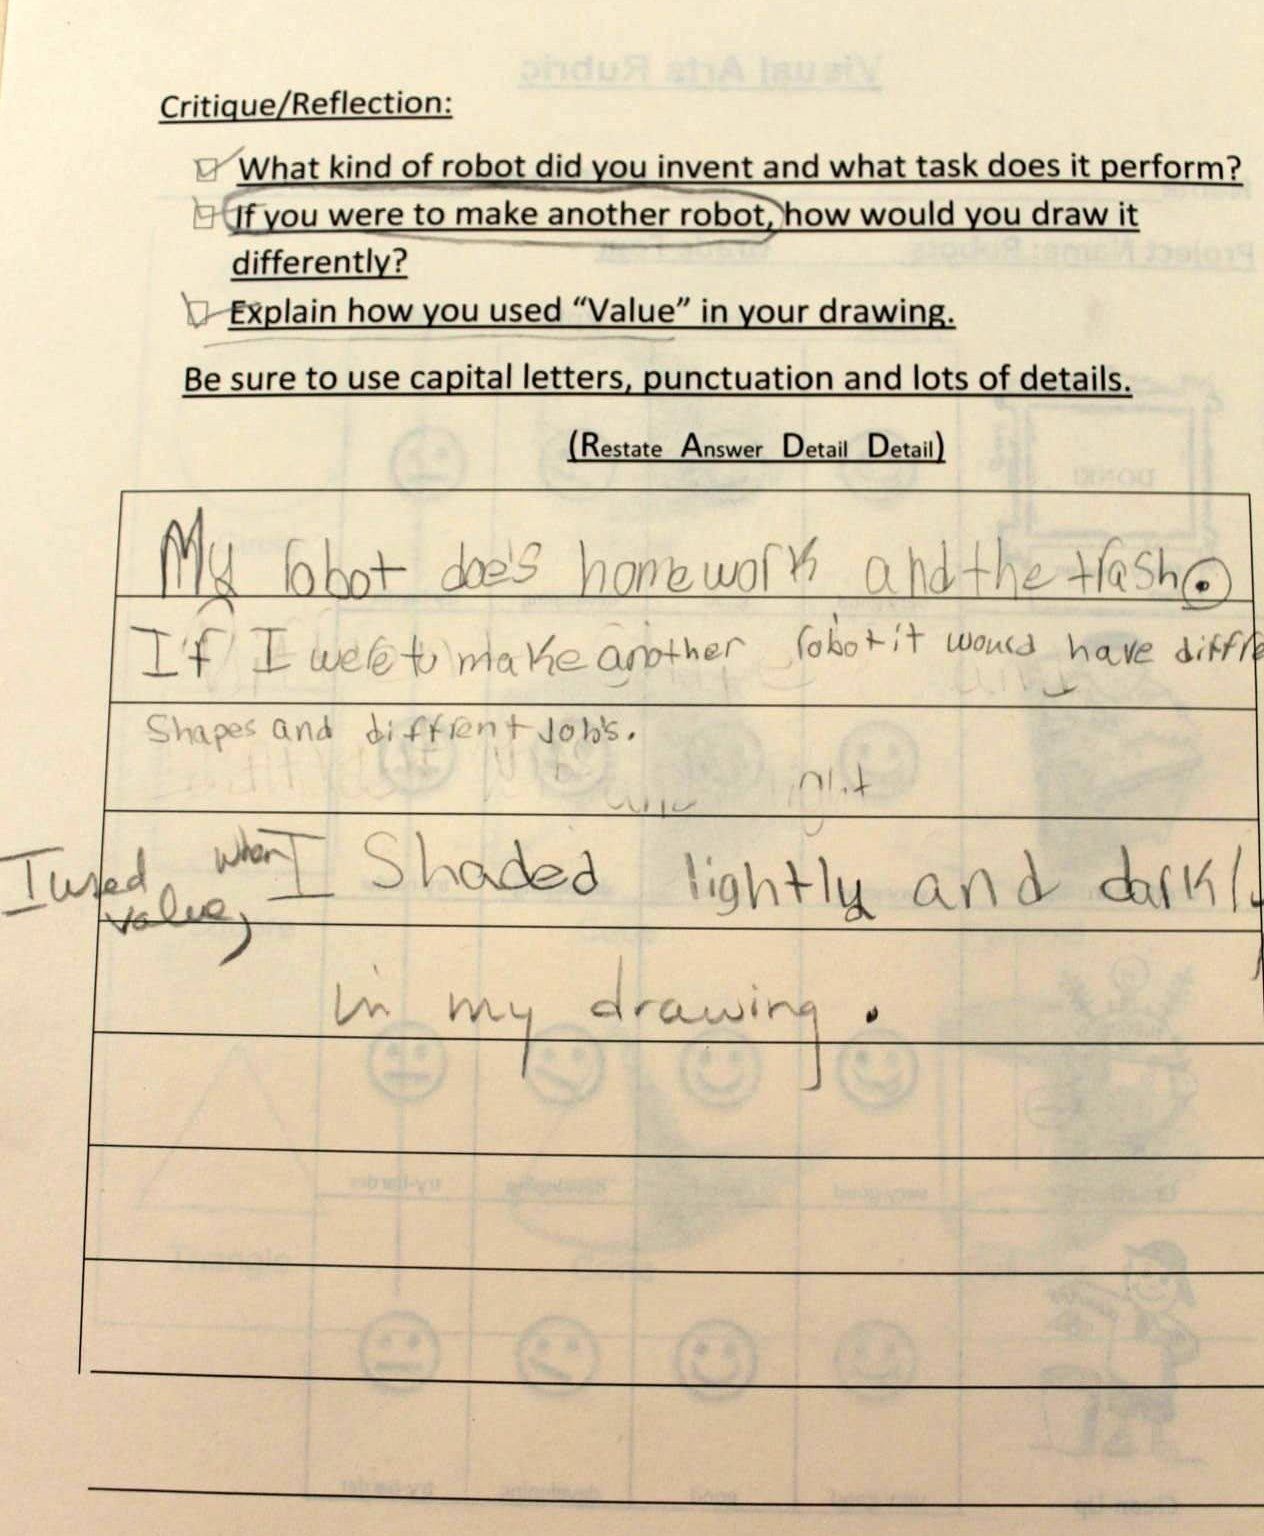 Critique/Reflection:
What kind of robot did you invent and what task does it perform?
If you were to make another robot, how would you draw it
differently?
Explain how you used “Value” in your drawing.
Be sure to use capital letters, punctuation and lots of details.
(Restate Answer Detail Detail)
My robot doe's homework and the trash.
If I were to make another robot it would have diffre
Shapes and diffrent Job's.
I used value, when I Shaded lightly and darkly
in my drawing.